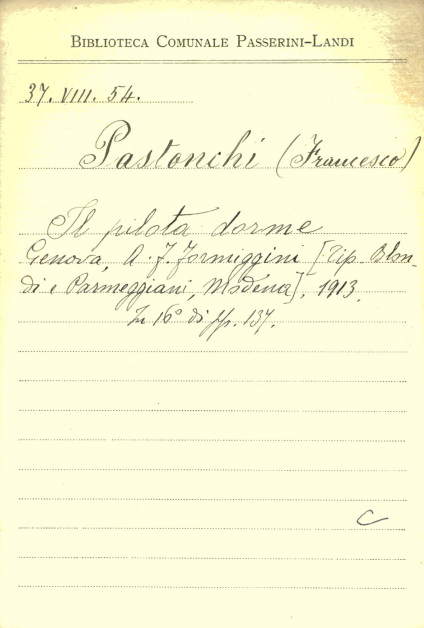 BIBLIOTECA COMUNALE PASSERINI-LANDI
37. VIII. 54.
Pastonchi (Francesco)
Il pilota dorme
Genova, A. F. Formiggini [Tip. Blon-
di e Parmeggiani, Modena], 1913.
In 16° di pp. 137.
C